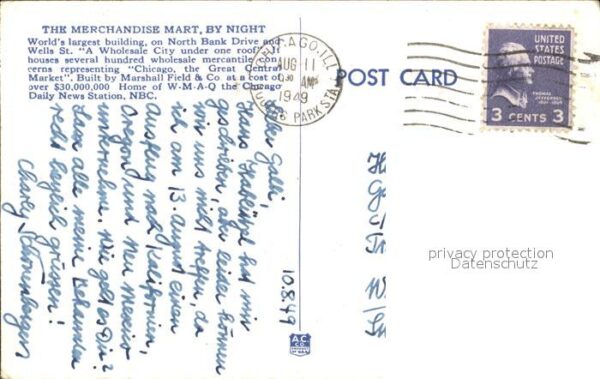 THE MERCHANDISE MART, BY NIGHT
World's largest building, on North Bank Drive and
Wells St. "A Wholesale City under one roof." It
houses several hundred wholesale mercantile con-
cerns representing "Chicago, the Great Central
Market". Built by Marshall Field & Co at a cost of
over $30,000,000 Home of W-M-A-Q the Chicago
Daily News Station, NBC.
CHICAGO, ILL.
AUG 11
AM
1949
ROGERS PARK STA.
POST CARD
UNITED
STATES
POSTAGE
THOMAS
JEFFERSON
3 CENTS 3
Lieber
Hans hat mir
geschrieben, aber leider können
wir uns nicht treffen, da
ich am 13. August einen
Ausflug nach Kalifornien,
Oregon und New Mexico
unternehme. Wie geht es Dir?
Lass alle meine Bekannten
recht herzlich grüssen!
Charly
10.8.49
A.C.
CO.
privacy protection
Datenschutz